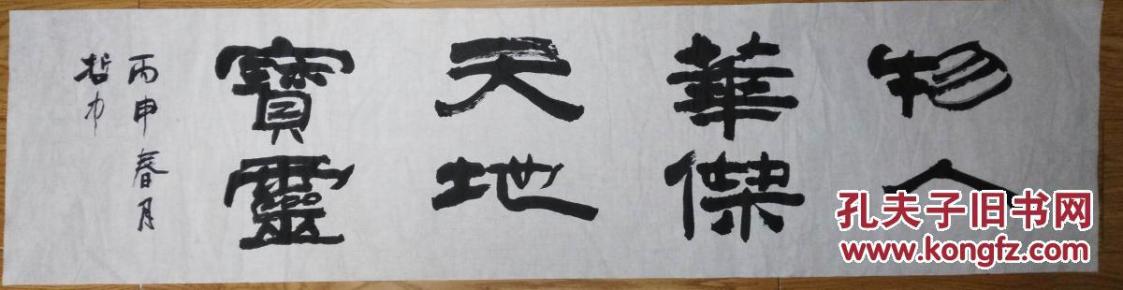 物華天寶
人傑地靈
丙申春月
哲
孔夫子旧书网
www.kongfz.com